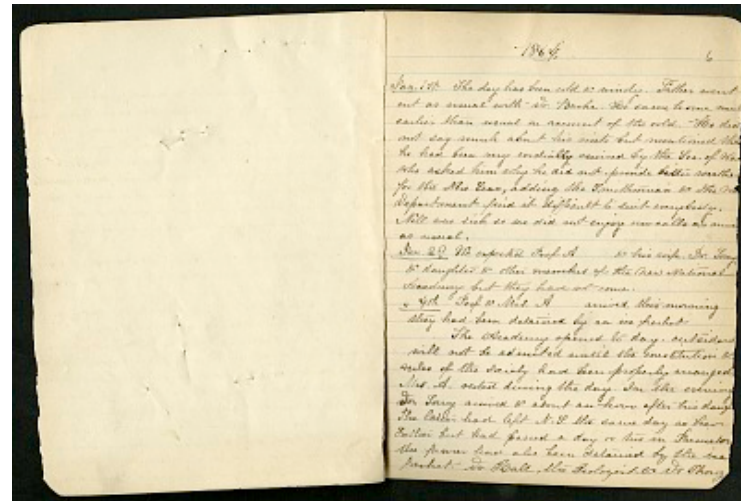 1864. 6
Jan. 1st. The day has been cold & windy. Father went
out as usual with Dr. Bache. He came home much
earlier than usual on account of the cold. He did
not say much about his visits but mentioned that
he had been very cordially received by the Sec. of War
who asked him why he did not provide better weather
for the New Year, adding the Smithsonian & the War
Department find it difficult to suit everybody.
Nell was sick so we did not enjoy our calls as much
as usual.
Jan. We expected Prof. A & his wife Dr. Torrey
& daughter & other members of the New National
Academy but they have not come.
" 4th Prof & Mrs. A arrived this morning
they had been detained by an ice
The Academy opened to day. outsiders
will not be admitted until the constitution &
rules of the Society have been properly arranged.
Mrs. A. rested during the day. In the evening
Dr. Torrey arrived & about an hour after his daughter
The latter had left N.Y. the same day as her
but had passed a day or two in Princeton
the former had also been detained by the ice
Dr. Hall, & Dr